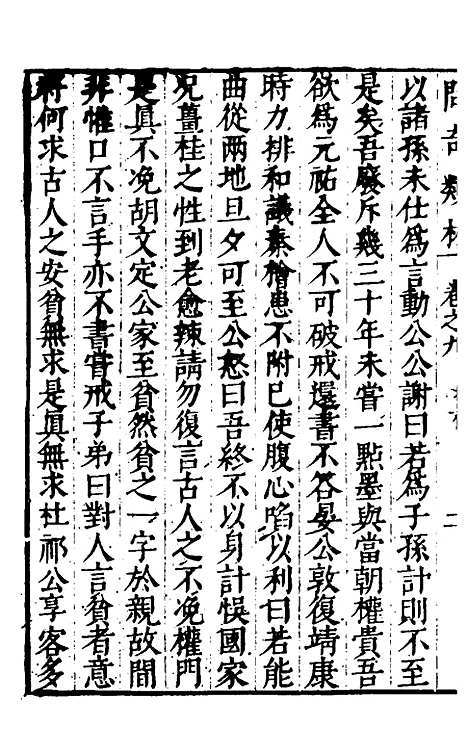 問奇類林 卷之九
以諸孫未仕爲言動公公謝曰若爲子孫計則不至
是矣吾廢斥幾三十年未嘗一點墨與當朝權貴吾
欲爲元祐全人不可破戒還書不答晏公敦復靖康
時力排和議秦檜患不附已使腹心䧟以利曰若能
曲從兩地旦夕可至公怒曰吾終不以身計悞國家
况薑桂之性到老愈辣請勿復言古人之不㓗權門
是眞不免胡文定公家至貧然貧之一字於親故間
非惟口不言手亦不書嘗戒子弟曰對人言貧者意
將何求古人之安貧無求是眞無求杜祁公享客多